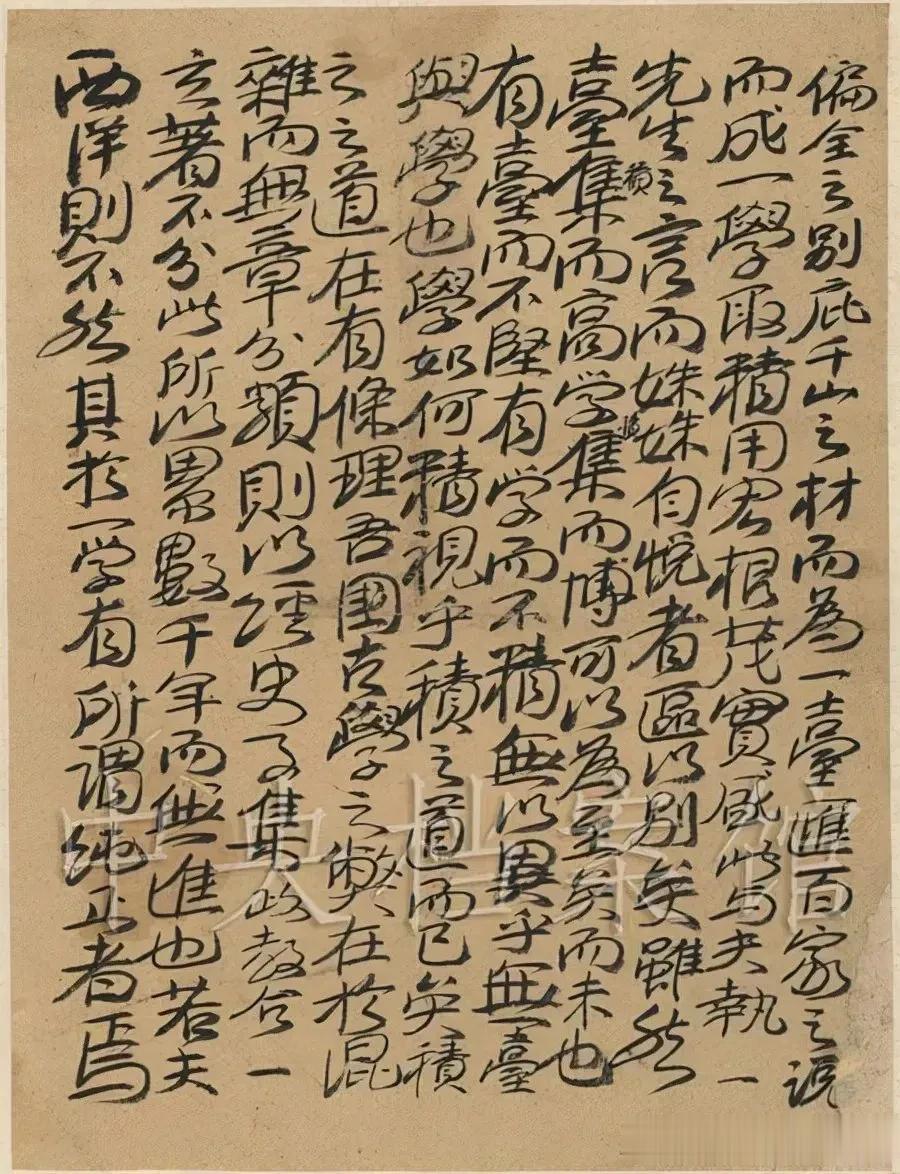 偏全之別庇千山之材而為一臺匯百家之説
而成一學取精用宏根茂實盛此与夫執一
先生之言而姝姝自悦者區以別矣雖然
積
積
臺集而高学集而博可以為至矣而未也
有臺而不堅有学而不精無以異乎無臺
與學也學如何精視乎積之道而已矣積
之之道在有條理吾國古學之弊在於混
雜而無章分類則以經史子集政教合一
玄著不分此所以累數千年而無進也若夫
西洋則不然其於一学有所謂純正者焉
中央档案馆